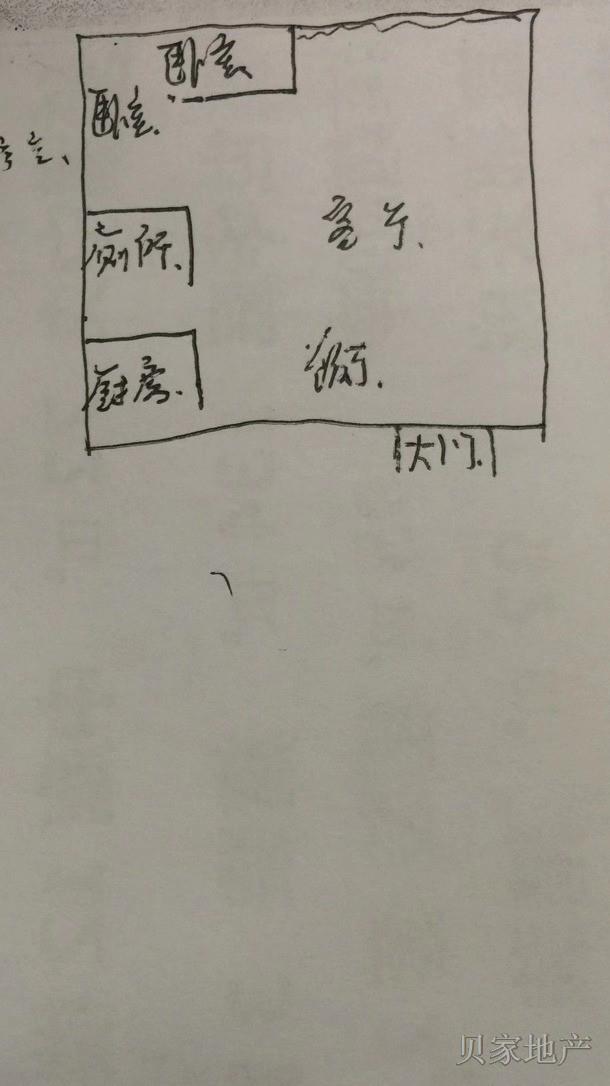 卧室
卧室
厕所
客厅
厨房
饭厅
大门
贝家地产